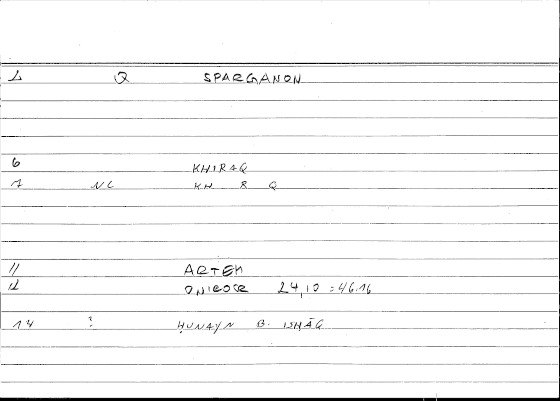 1 Q SPARGANON
6 KHIRAQ
7 NC KH R Q
11 ARTEM
12 ONIROCR 24,10 = 46.16
14 ? ḤUNAYN B. ISḤĀQ